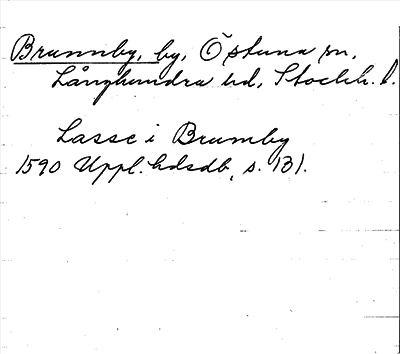 Brunnby, by, Östuna sn.
Långhundra hd, Stockh. l.
Lasse i Brumby
1590 Uppl. hdsdb, s. 131.